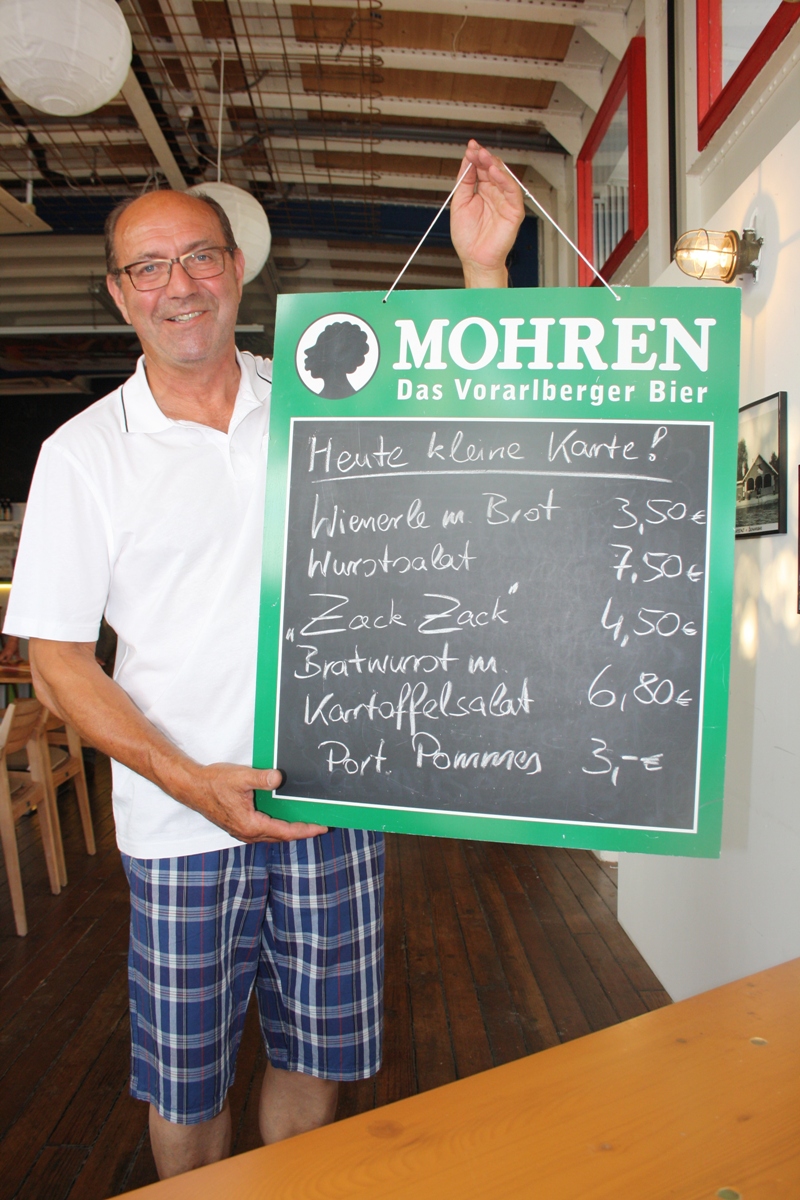 MOHREN
Das Vorarlberger Bier
Heute kleine Karte!
Wienerle m. Brot 3,50€
Wurstsalat 7,50€
„Zack Zack" 4,50€
Bratwurst m.
Kartoffelsalat 6,80€
Port. Pommes 3,-€